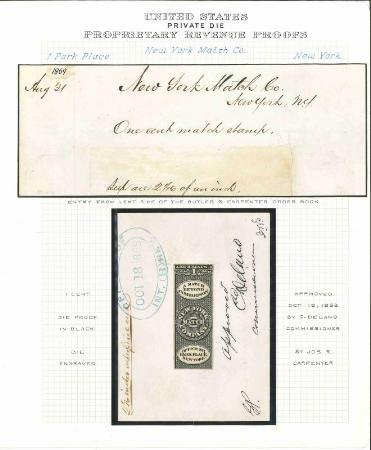 UNITED STATES
PRIVATE DIE
PROPRIETARY REVENUE PROOFS
1 Park Place New York Match Co. New York
1869
Aug 31 New York Match Co.
New York, NY
One cent match stamp.
of an inch.
ENTRY FROM LEFT SIDE OF THE BUTLER & CARPENTER ORDER BOOK
1 CENT
DIE PROOF
IN BLACK
DIE
ENGRAVED
OCT 18 1869
1
A MATCH
BEYOND
NEW YORK
MATCH
COMPANY
OFFICE NO.1
PARK PLACE
NEW YORK
Approved
C Delano
Commissioner
APPROVED
OCT. 18, 1869
BY C. DELANO
COMMISSIONER
BY JOS. R.
CARPENTER